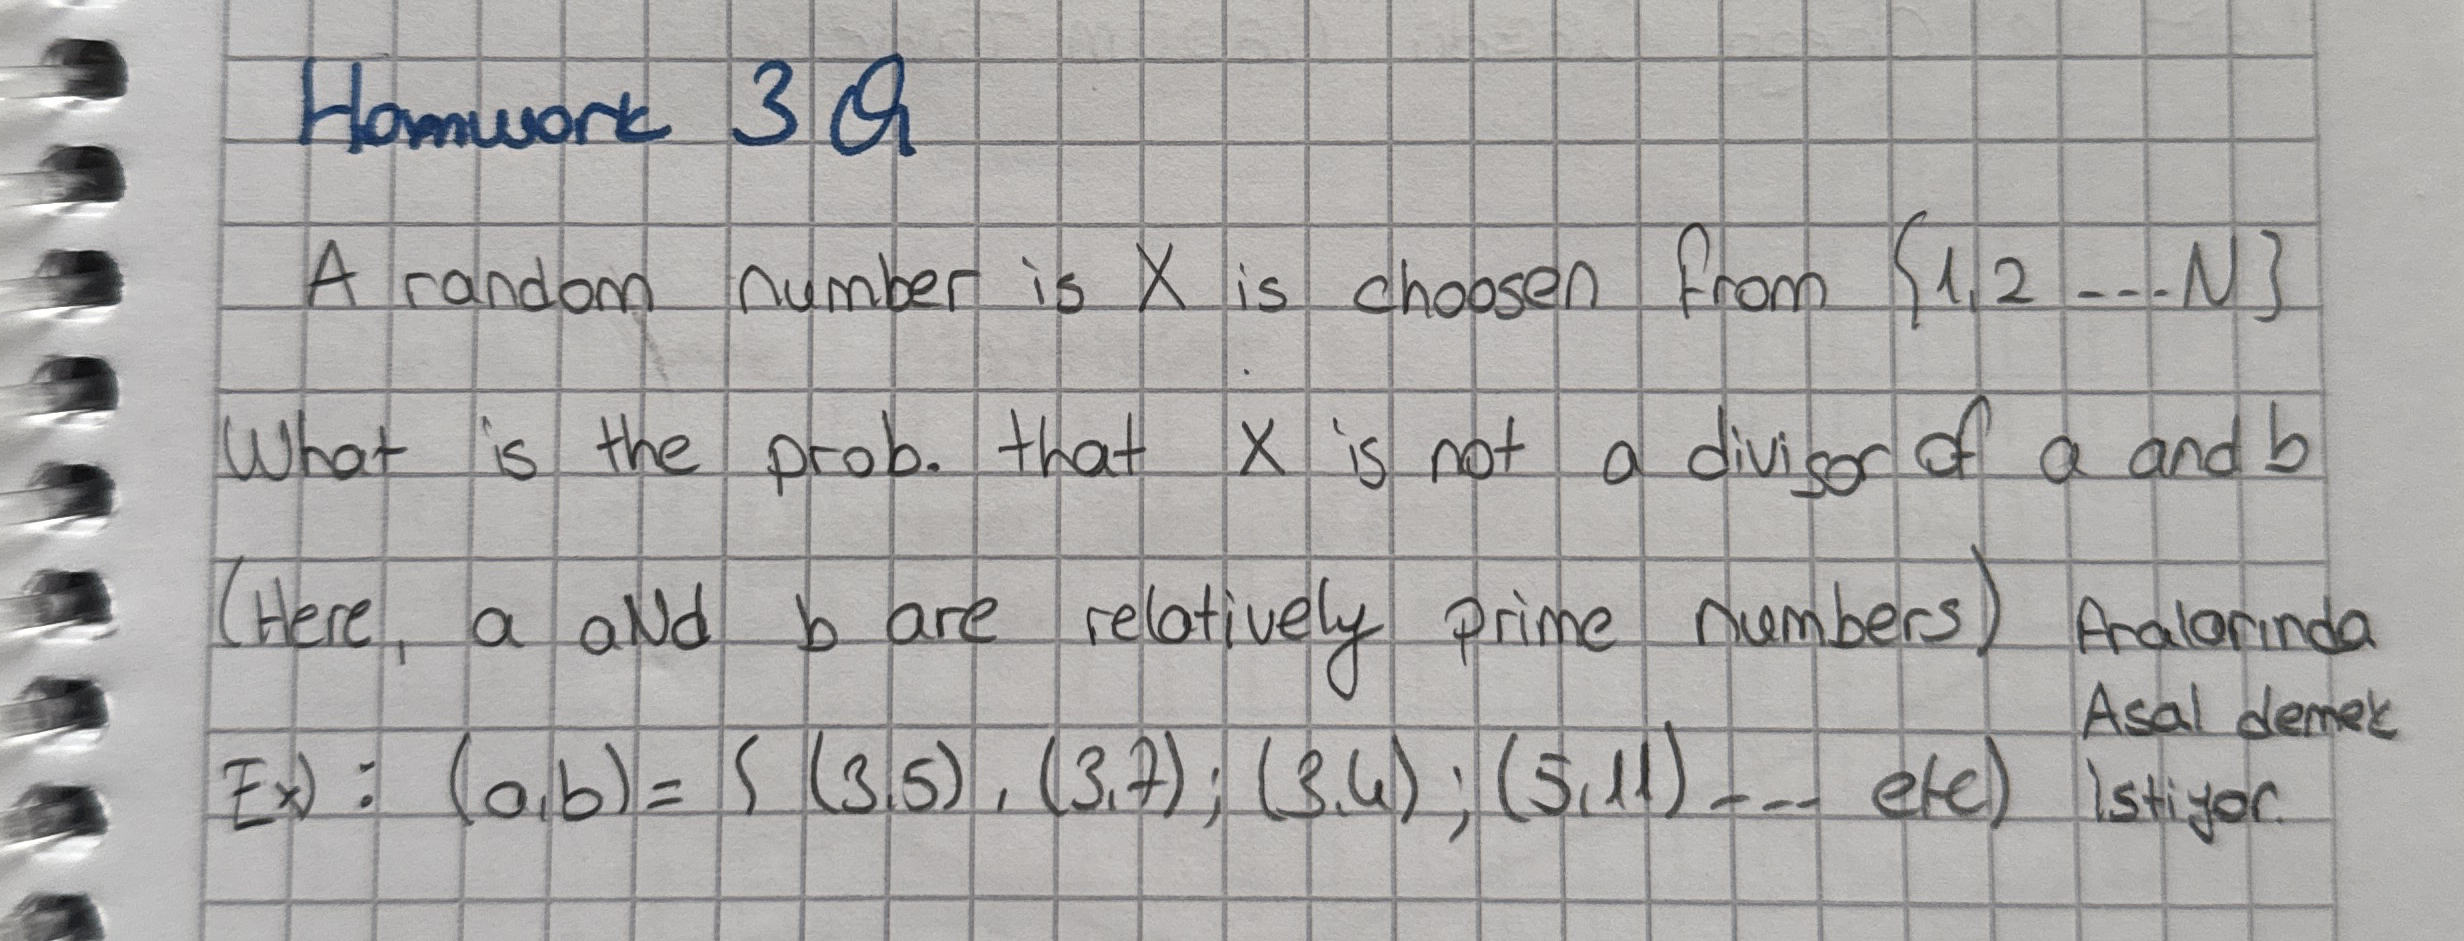 Homwork 3 Q
A random number is X is choosen from {1,2 ---- N}
What is the prob. that X is not a divisor of a and b
(Here, a aNd b are relatively prime numbers) Aralarinda
Asal demek
Ex) : (a,b) = { (3,5), (3,7); (3,4); (5,11) ---- etc) istiyor.